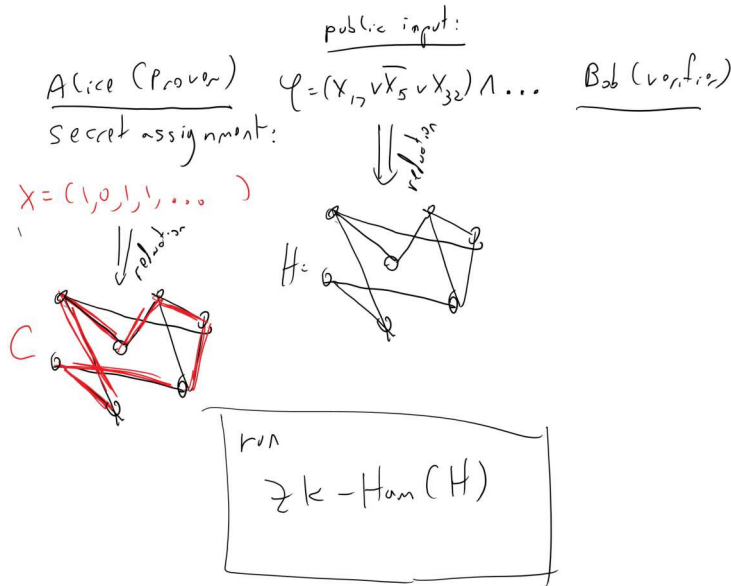 public input:
Alice (Prover)
φ = (X₁₇ ∨ X̅₅ ∨ X₃₂) ∧ ...
Bob (verifier)
Secret assignment:
reduction
X = (1,0,1,1,... )
reduction
H =
C
run
zk-Ham(H)